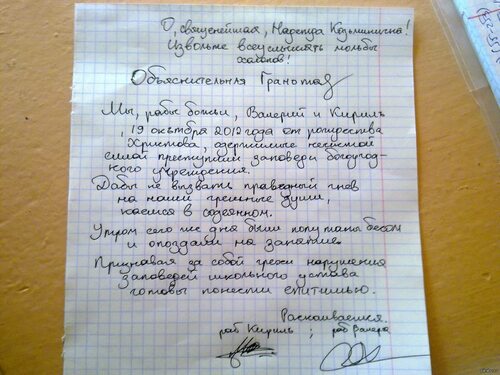 О, священейшая, Надежда Козьминична!
Извольте всеуслышать мольбы
холопов!
Объяснительная Грамота
Мы, рабы божьи, Валерий и Кириль
, 19 октября 2012 года от рождества
Христова, одержимые нечистой
силой преступили заповеди богоугод-
ного учреждения.
Дабы не вызвать праведный гнев
на наши грешные души,
каемся в содеянном.
Утром сего же дня были попутаны бесом
и опоздали на занятие.
Признавая за собой грехи нарушения
заповедей школьного устава
готовы понести епитимью.
Раскаиваемся
раб Кириль ; раб Валера